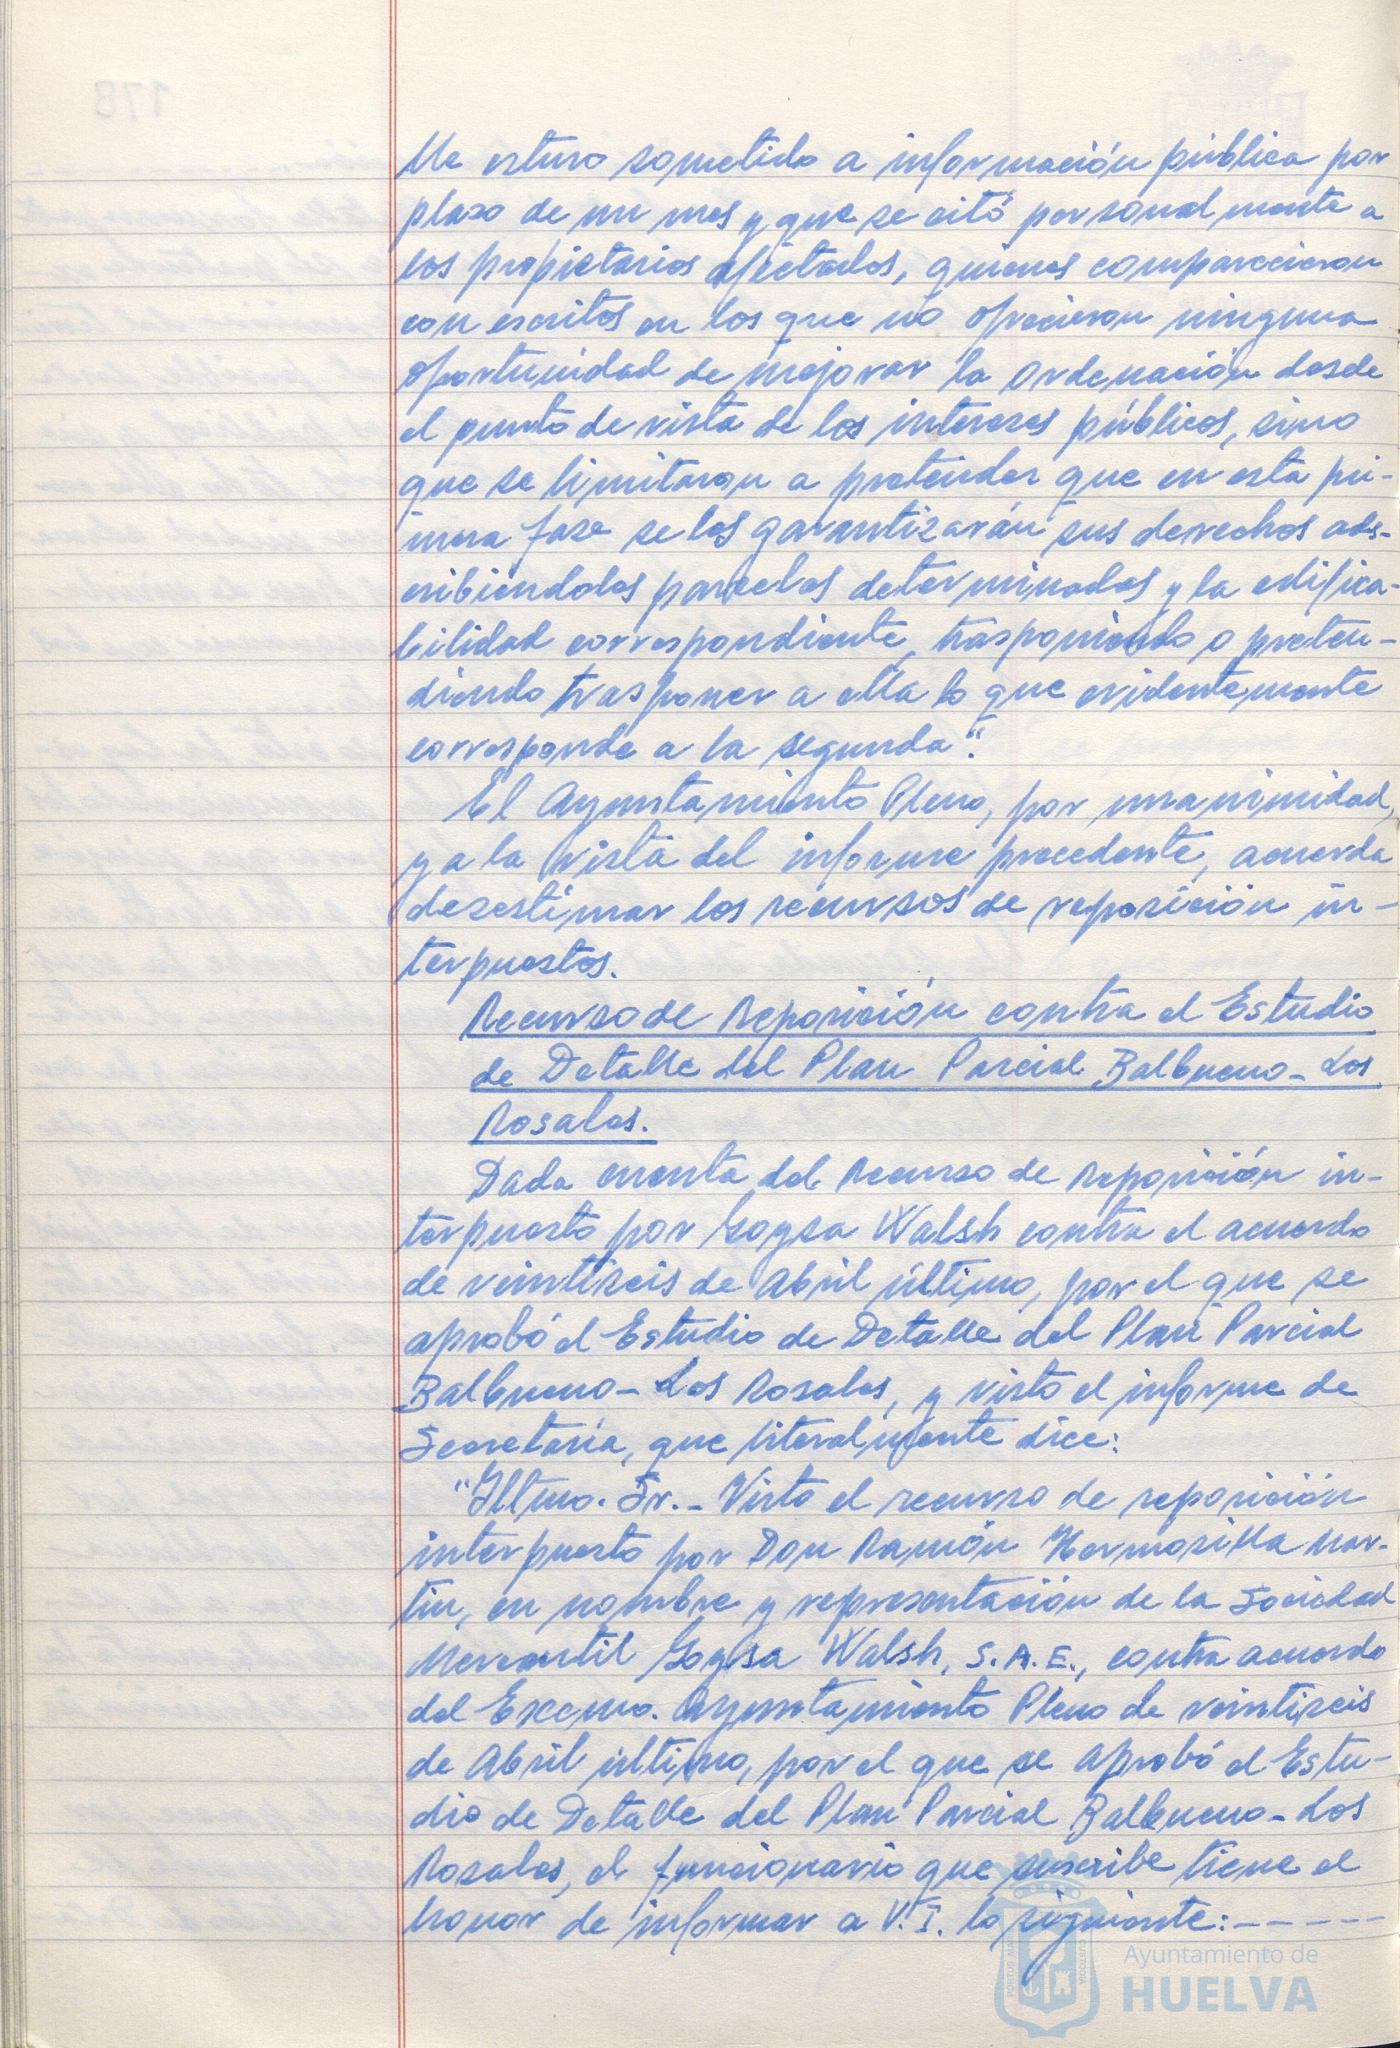 lle estuvo sometido a información pública por
plazo de un mes y que se citó personalmente a
los propietarios afectados, quienes comparecieron
con escritos en los que no ofrecieron ninguna
oportunidad de mejorar la Ordenación desde
el punto de vista de los intereses públicos, sino
que se limitaron a pretender que en esta pri-
mera fase se los garantizarán sus derechos ads-
cribiéndoles parcelas determinadas y la edifica
bilidad correspondiente, trasponiendo o preten-
diendo trasponer a ella lo que evidentemente
corresponde a la segunda".
El Ayuntamiento Pleno, por unanimidad,
y a la vista del informe precedente, acuerda
desestimar los recursos de reposición in-
terpuestos.
Recurso de Reposición contra el Estudio
de Detalle del Plan Parcial Balbueno-Los
Rosales.
Dada cuenta del Recurso de Reposición in-
terpuesto por Goysa Walsh contra el acuerdo
de veintiseis de Abril último, por el que se
aprobó el Estudio de Detalle del Plan Parcial
Balbueno-Los Rosales, y visto el informe de
Secretaría, que literalmente dice:
"Iltmo. Sr.- Visto el recurso de reposición
interpuesto por Don Ramón Hermosilla Mar-
tin, en nombre y representación de la Sociedad
Mercantil Goysa Walsh, S.A.E., contra acuerdo
del Excmo. Ayuntamiento Pleno de veintiseis
de Abril último, por el que se aprobó el Estu-
dio de Detalle del Plan Parcial Balbueno-Los
Rosales, el funcionario que suscribe tiene el
honor de informar a V.I. lo siguiente:-----
Ayuntamiento de
HUELVA